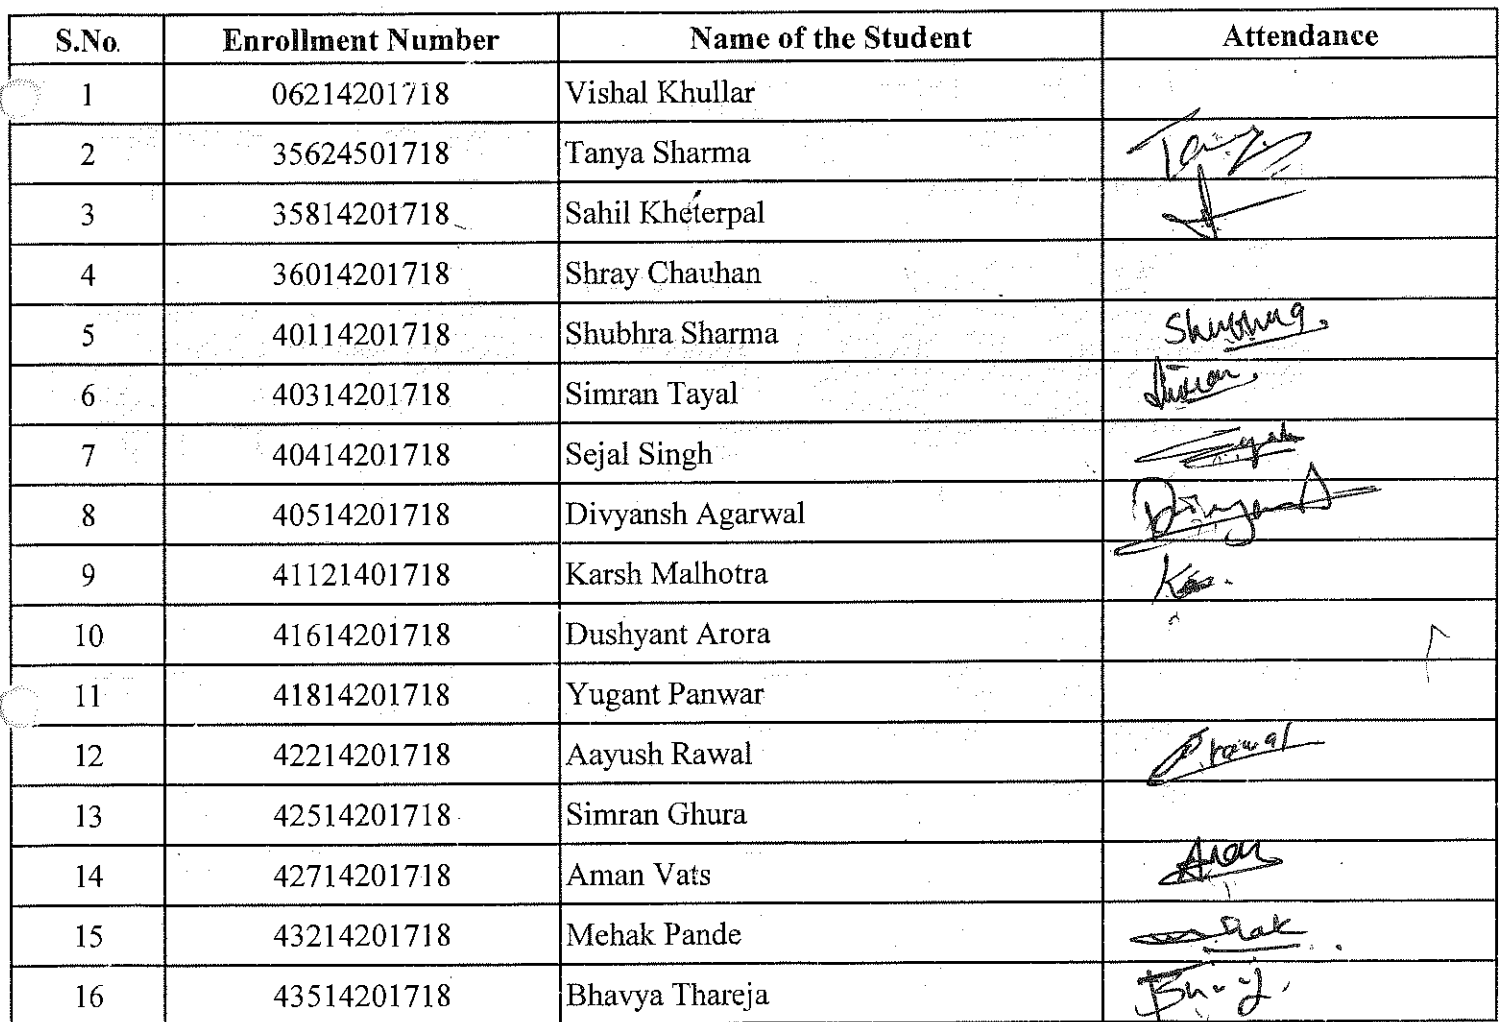 S.No. Enrollment Number Name of the Student Attendance
1 06214201718 Vishal Khullar
2 35624501718 Tanya Sharma
3 35814201718 Sahil Kheterpal
4 36014201718 Shray Chauhan
5 40114201718 Shubhra Sharma
6 40314201718 Simran Tayal
7 40414201718 Sejal Singh
8 40514201718 Divyansh Agarwal
9 41121401718 Karsh Malhotra
10 41614201718 Dushyant Arora
11 41814201718 Yugant Panwar
12 42214201718 Aayush Rawal
13 42514201718 Simran Ghura
14 42714201718 Aman Vats
15 43214201718 Mehak Pande
16 43514201718 Bhavya Thareja